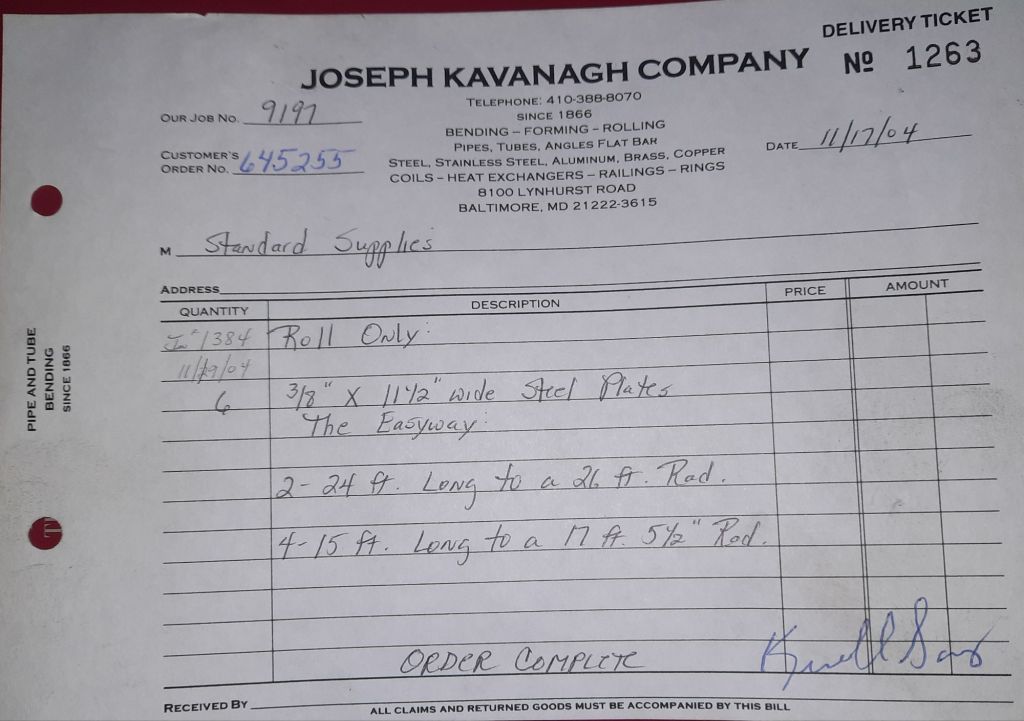 DELIVERY TICKET
JOSEPH KAVANAGH COMPANY
Nº 1263
TELEPHONE: 410-388-8070
SINCE 1866
BENDING – FORMING – ROLLING
PIPES, TUBES, ANGLES FLAT BAR
STEEL, STAINLESS STEEL, ALUMINUM, BRASS, COPPER
COILS – HEAT EXCHANGERS – RAILINGS – RINGS
8100 LYNHURST ROAD
BALTIMORE, MD 21222-3615
OUR JOB NO. 9197
CUSTOMER'S
ORDER NO. 645255
DATE 11/17/04
M Standard Supplies
ADDRESS
QUANTITY DESCRIPTION PRICE AMOUNT
1384 Roll Only:
11/19/04
6 3/8" X 11 1/2" wide Steel Plates
The Easyway:
2- 24 ft. Long to a 26 ft. Rad.
4- 15 ft. Long to a 17 ft. 5 1/2" Rad.
ORDER COMPLETE
RECEIVED BY
ALL CLAIMS AND RETURNED GOODS MUST BE ACCOMPANIED BY THIS BILL
PIPE AND TUBE
BENDING
SINCE 1866